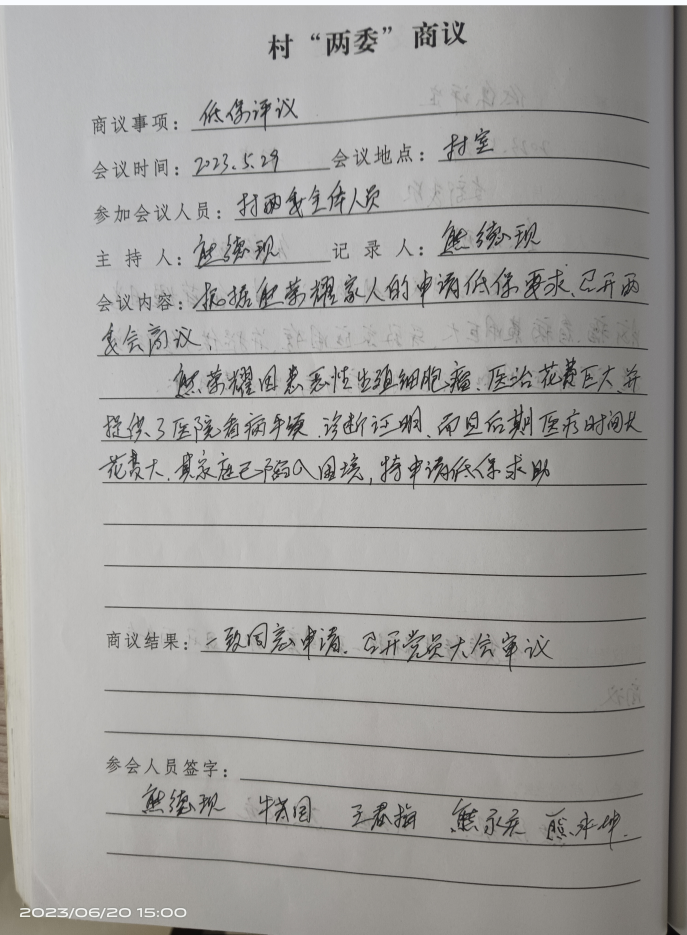 村“两委”商议
商议事项：低保评议
会议时间：2023.5.29 会议地点：村室
参加会议人员：村两委全体人员
主持人：熊德现 记录人：熊德现
会议内容：根据熊荣耀家人的申请低保要求、召开两
委会商议、
熊荣耀因患恶性生殖细胞瘤、医治花费巨大、并
提供了医院看病手续、诊断证明、而且后期医疗时间长
花费大、其家庭已陷入困境，特申请低保求助
商议结果：一致同意申请、召开党员大会审议
参会人员签字：
熊德现 王春梅 熊永 熊永坤
商议
2023/06/20 15:00